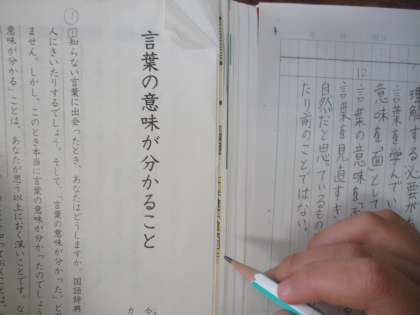 言葉の意味が分かること
①
知らない言葉に出会ったとき、あなたはどうしますか。国語辞典
人にきいたりするでしょう。そして、「言葉の意味が分かった」と
ません。しかし、このとき本当に言葉の意味が分かったのでしょう
意味が分かる」ことは、あなたが思う以上におく深いことです。な
12
理解する必要が
言葉を学んでい
意味を「面」として
言葉の意味を
言葉を見直す
自然だと思っているもの
たり前のことではない。